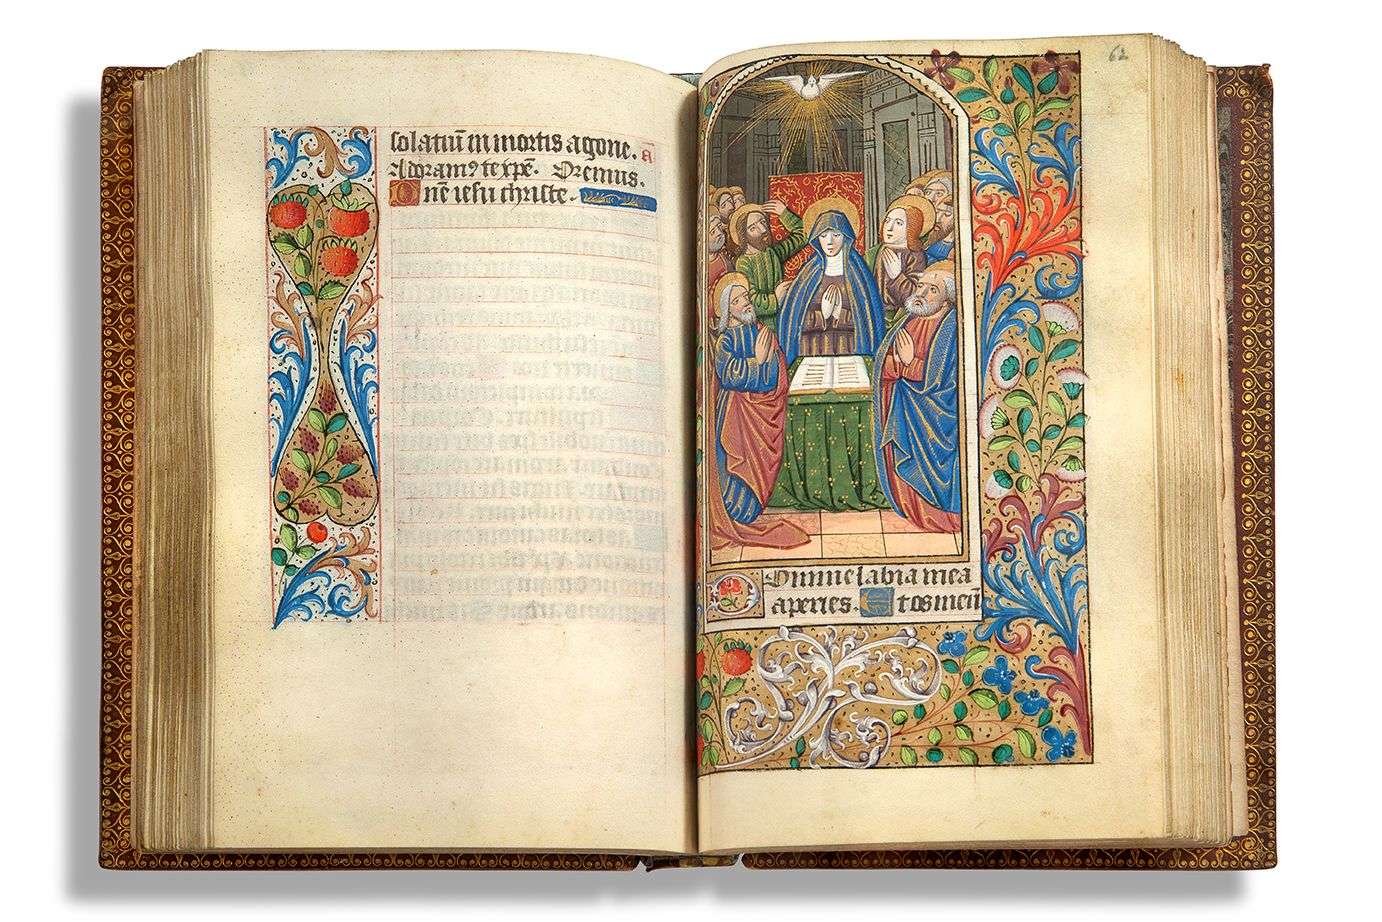 solatiū in mortis agone. A
Adoramꝰ te xpē. Oremus.
Dnē iesu christe.
62
Domine labia mea
aperies. Et os meū